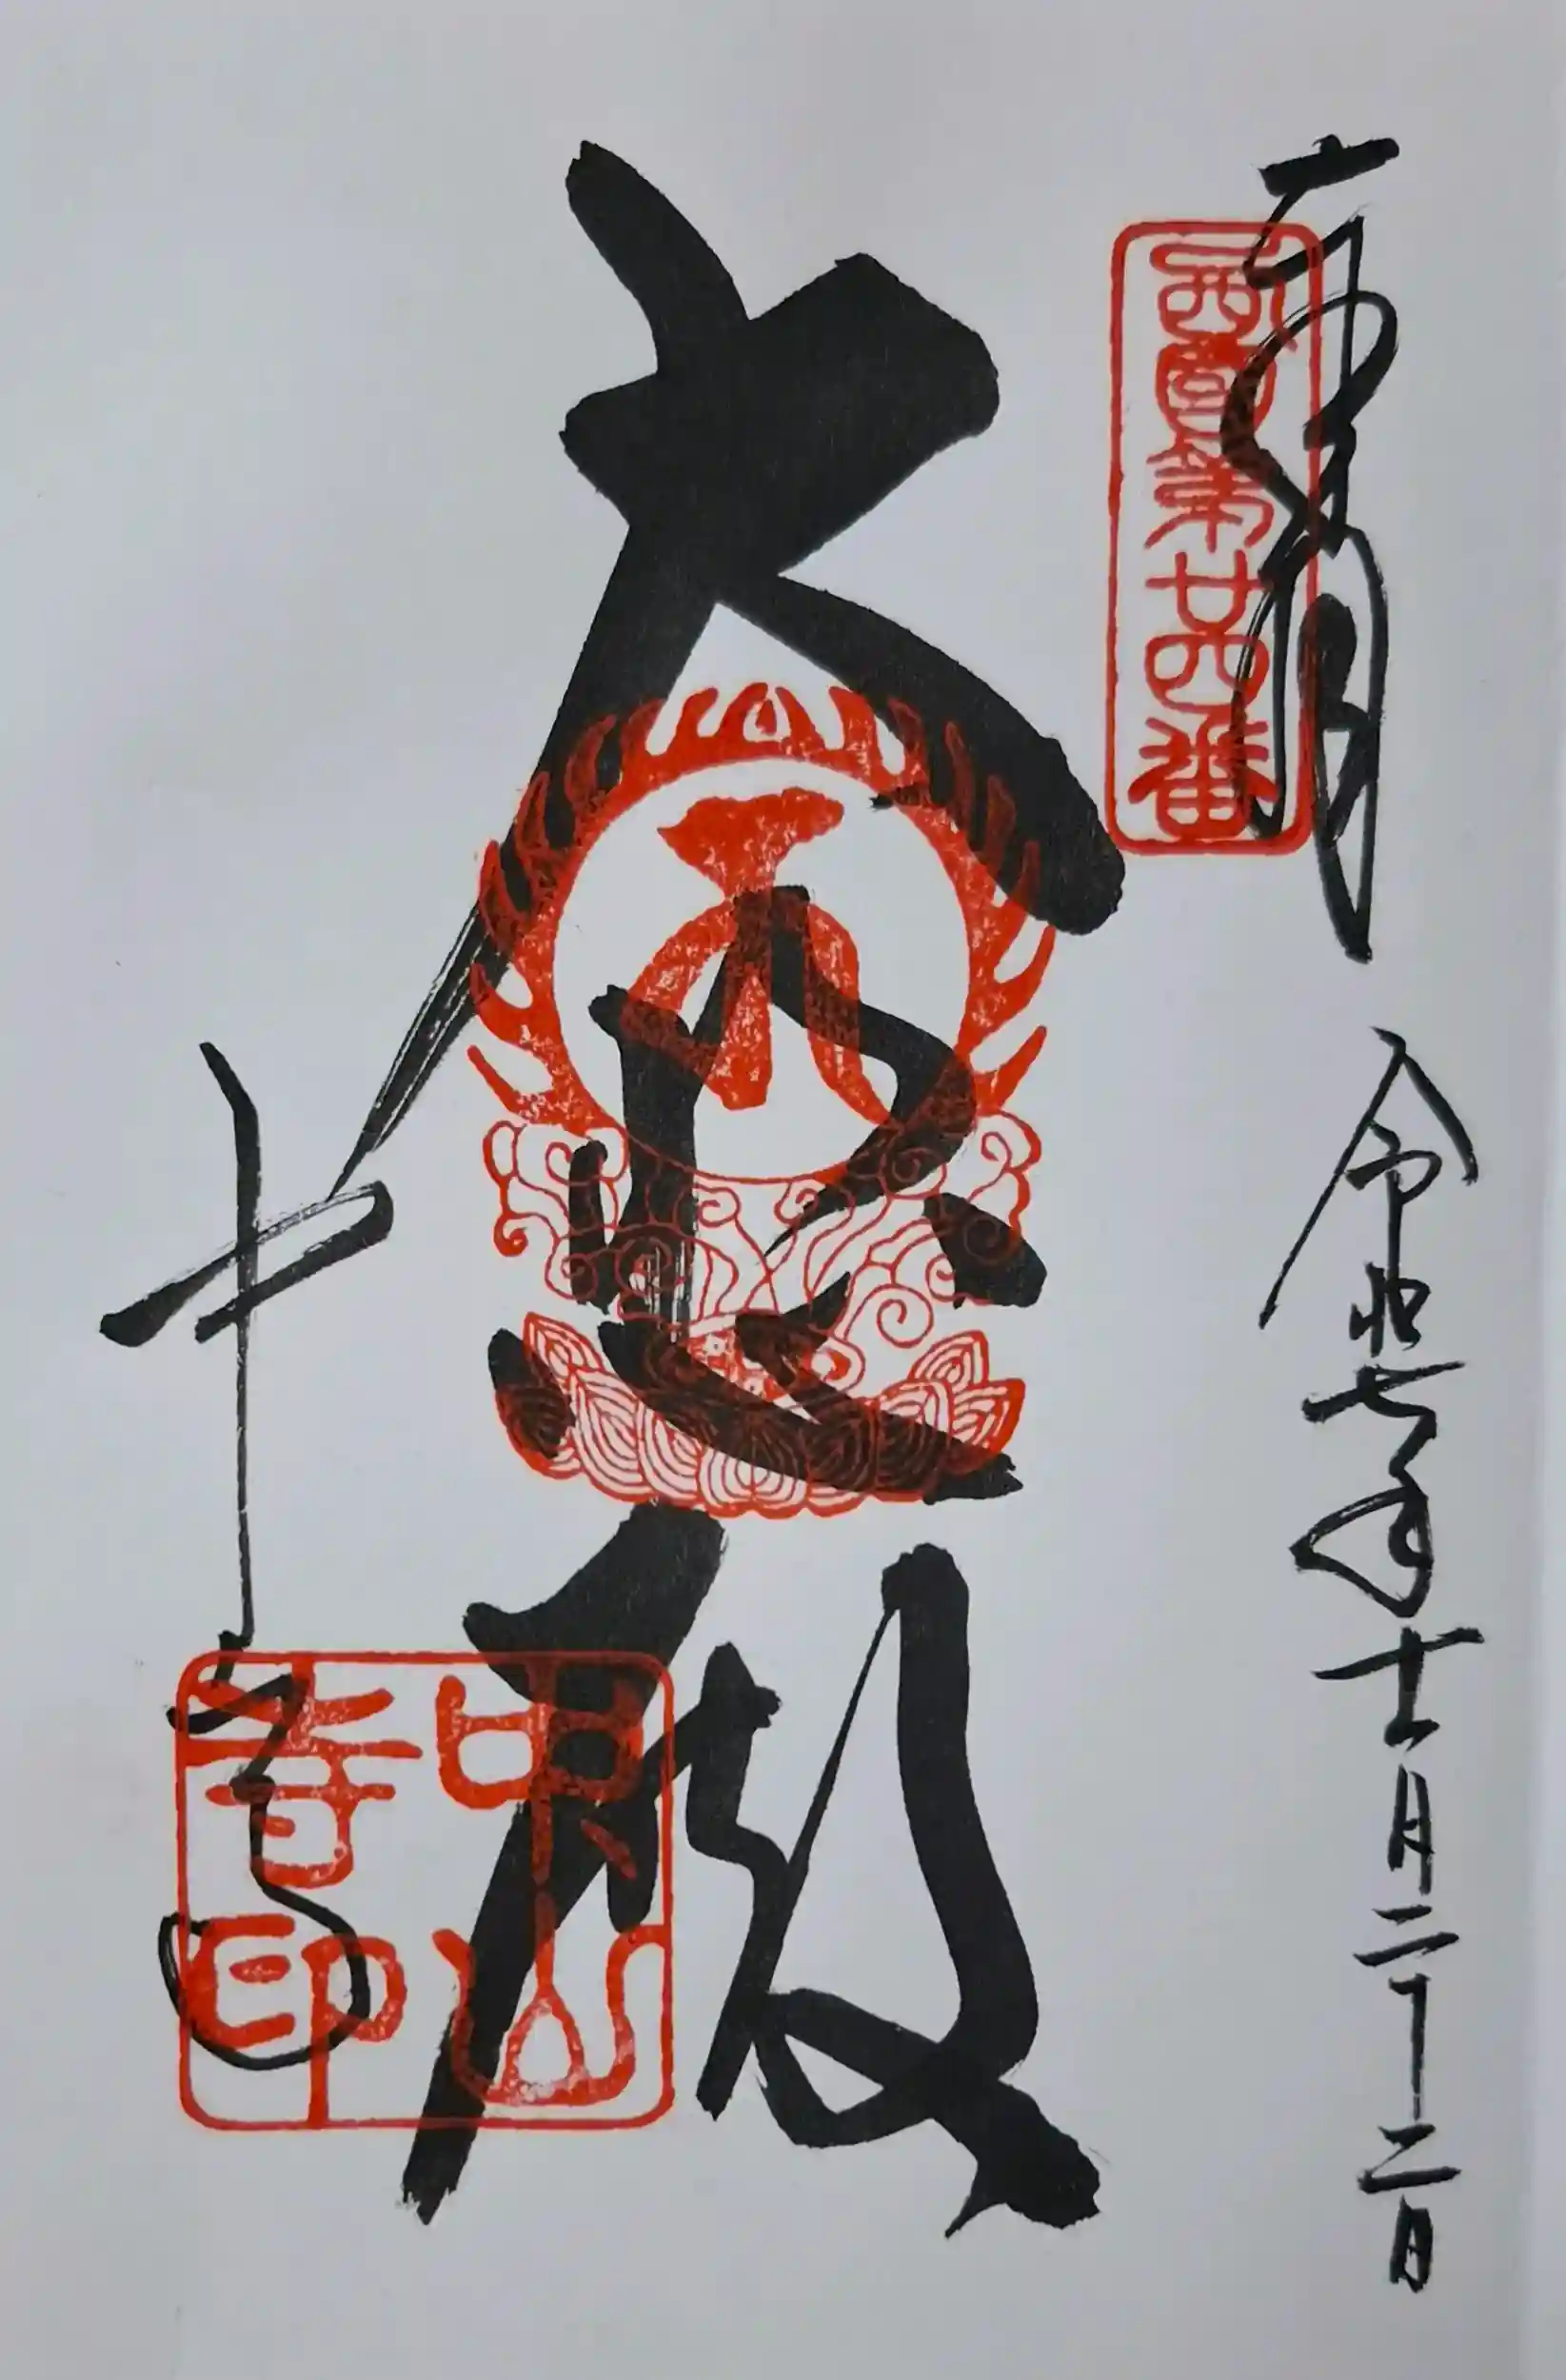 奉拝
令和七年十一月二十二日
西国第廿四番
大悲殿
中山寺
中山寺印